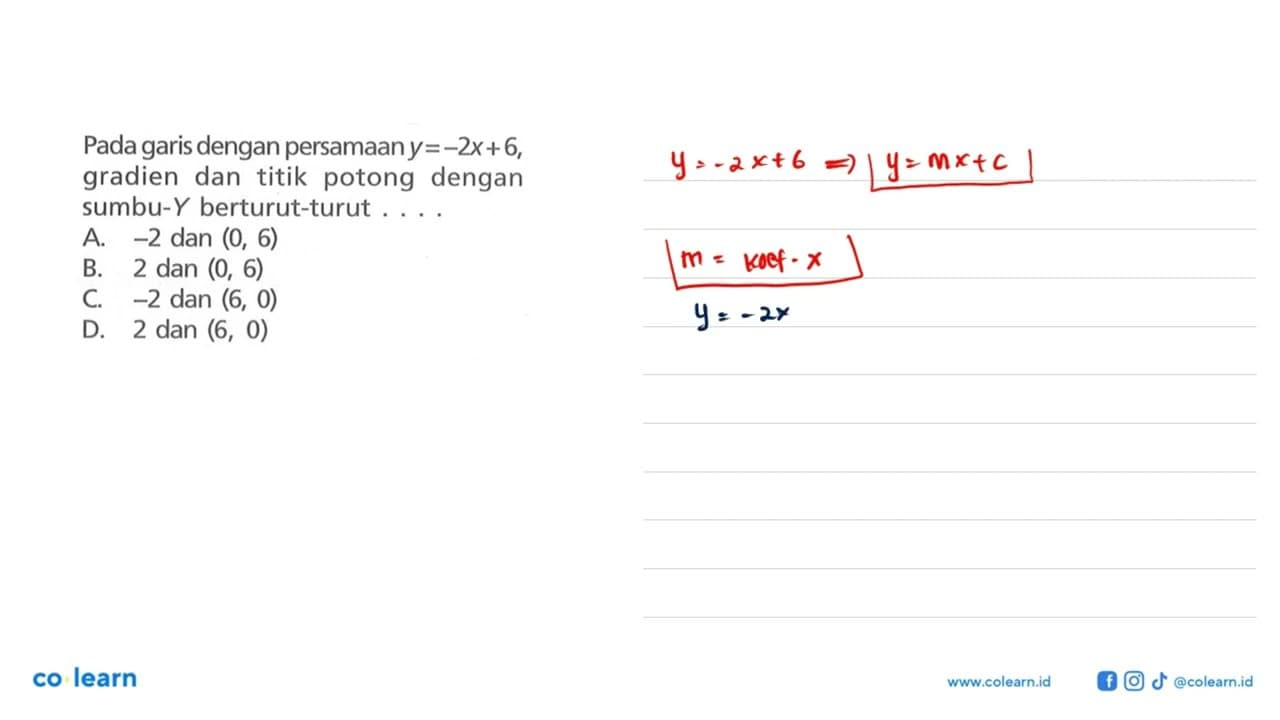 Pada garis dengan persamaan y=–2x+6,
gradien dan titik potong dengan
sumbu-Y berturut-turut . . . .
A. –2 dan (0, 6)
B. 2 dan (0, 6)
C. –2 dan (6, 0)
D. 2 dan (6, 0)
y = -2x+6 => y = mx+c
m = koef. x
y = -2x
co learn
www.colearn.id
@colearn.id